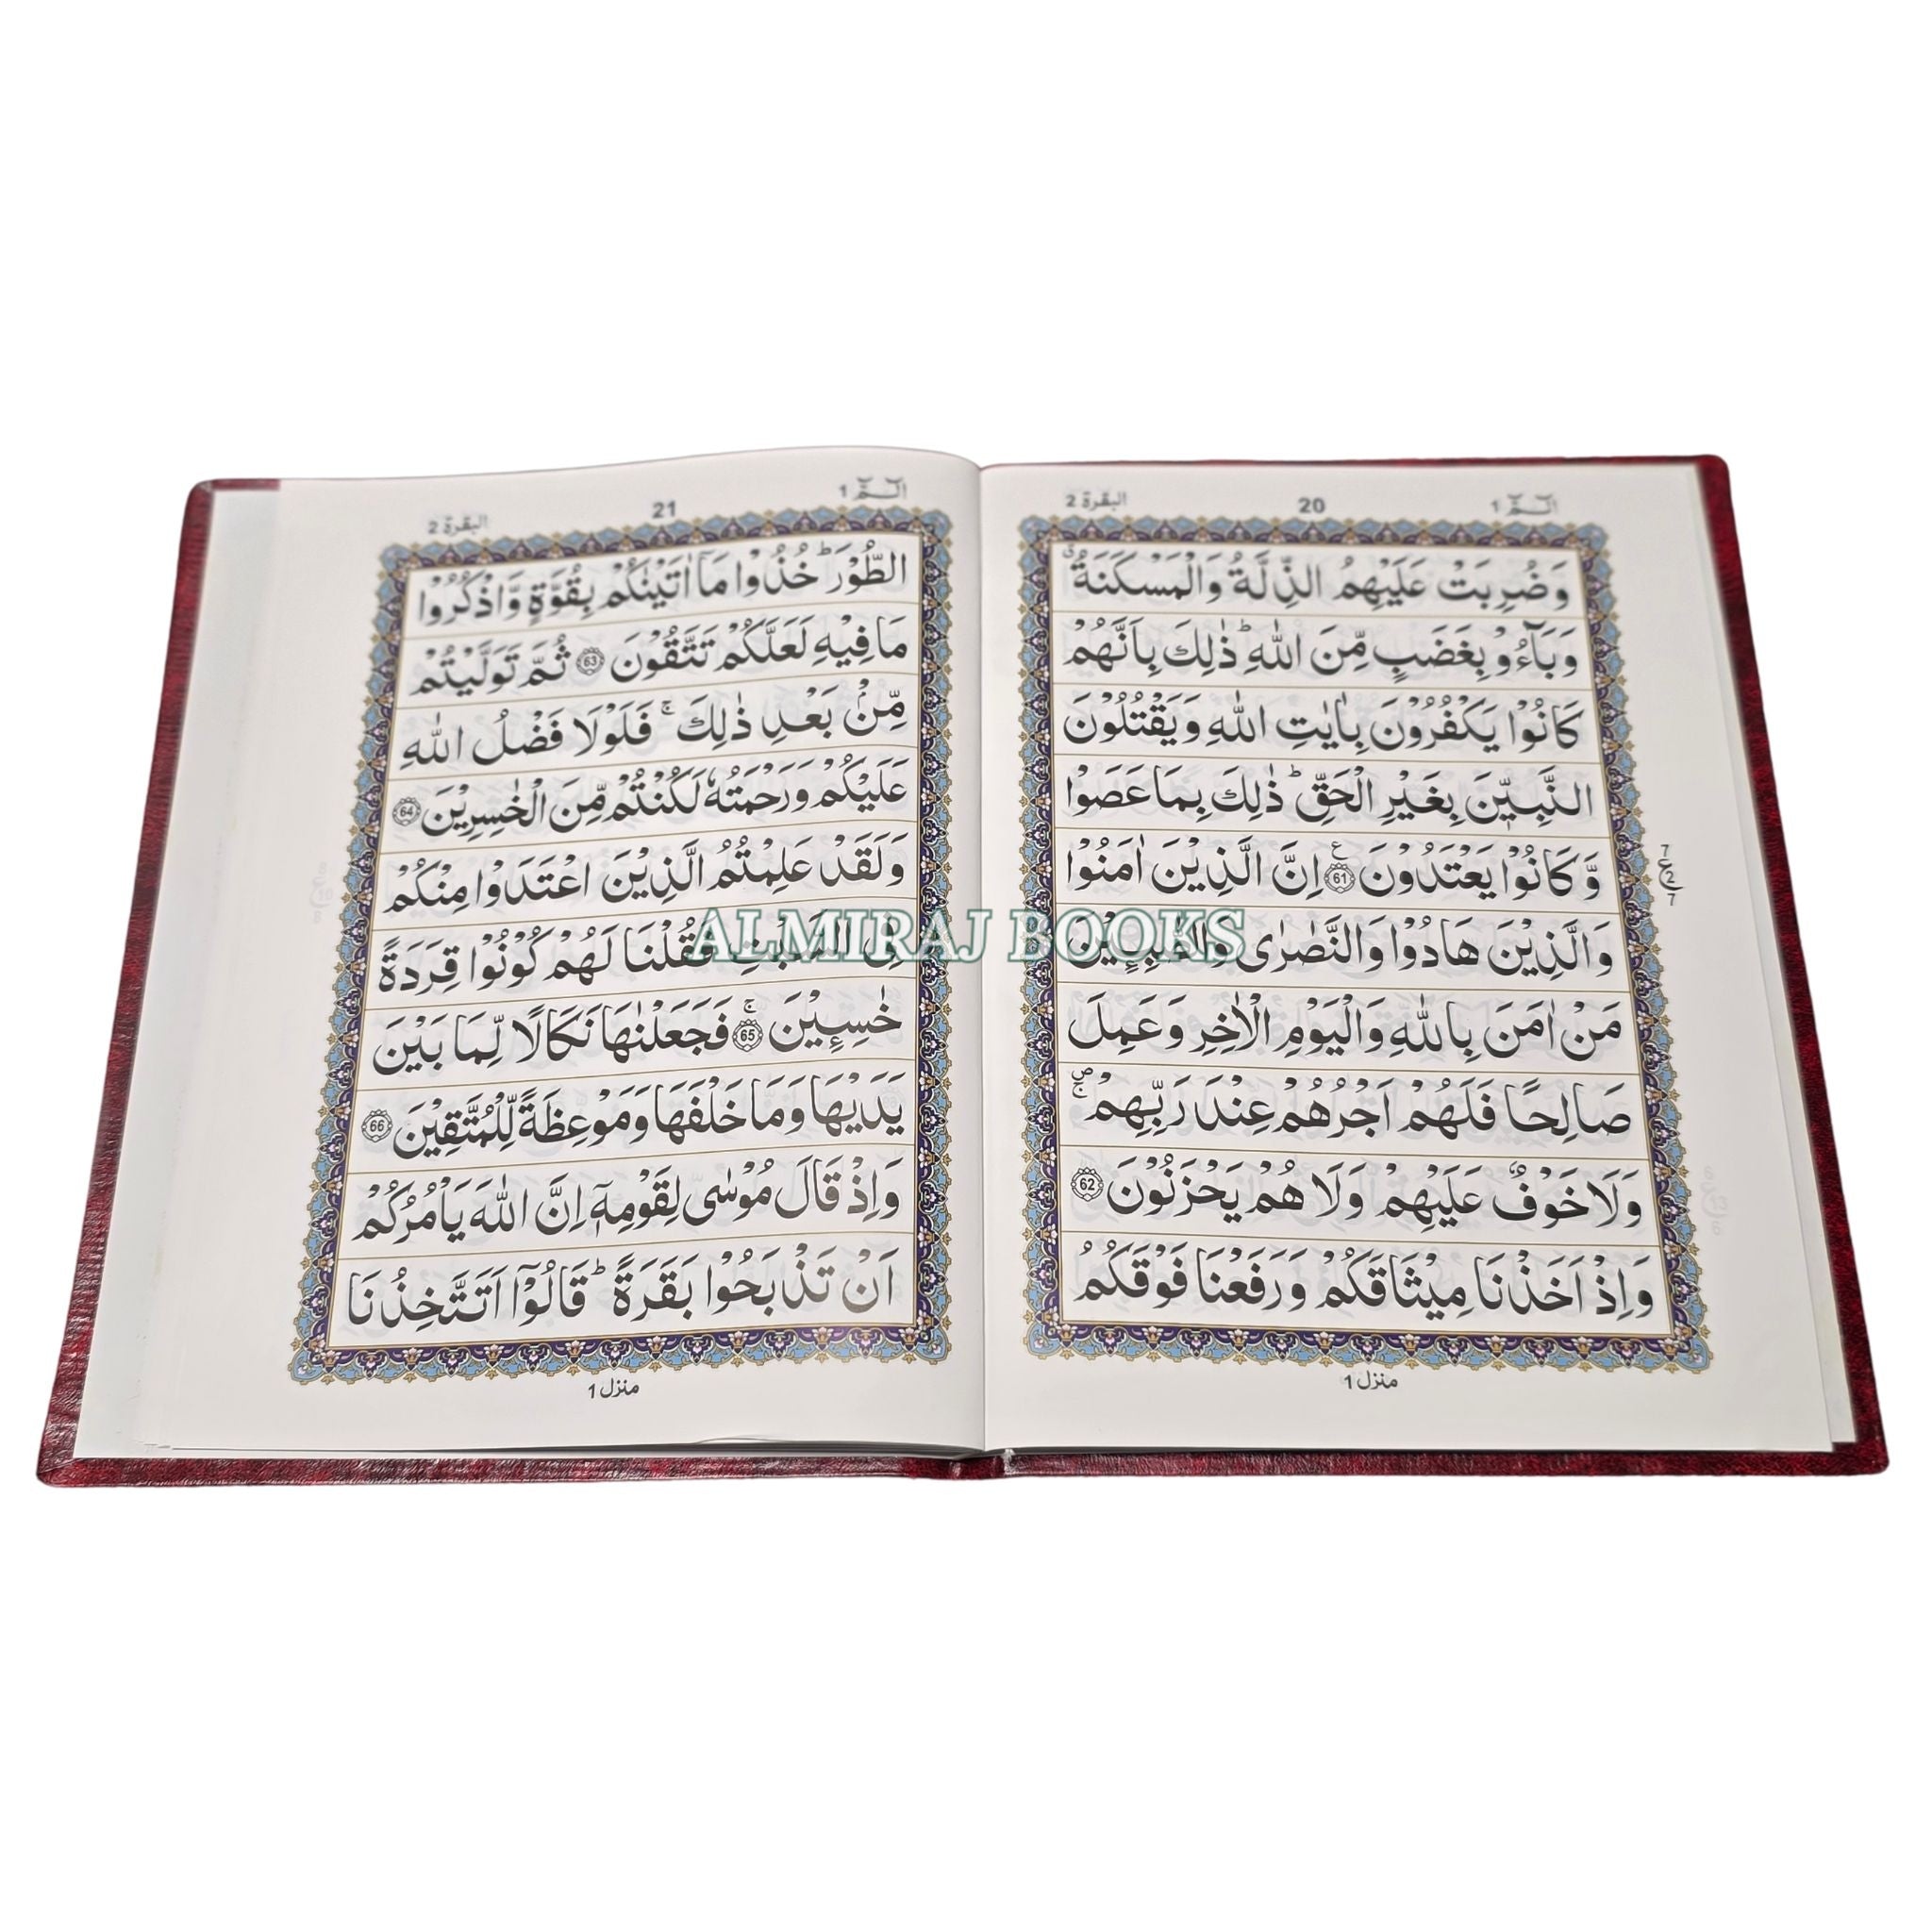 الٓمّٓ 1
20
البقرة 2
وَضُرِبَتْ عَلَيْهِمُ الذِّلَّةُ وَالْمَسْكَنَةُ ۗ
وَبَآءُوْ بِغَضَبٍ مِّنَ اللّٰهِ ؕ ذٰلِكَ بِاَنَّهُمْ
كَانُوْا يَكْفُرُوْنَ بِاٰيٰتِ اللّٰهِ وَيَقْتُلُوْنَ
النَّبِيّٖنَ بِغَيْرِ الْحَقِّ ؕ ذٰلِكَ بِمَا عَصَوْا
وَّكَانُوْا يَعْتَدُوْنَ 61 ع اِنَّ الَّذِيْنَ اٰمَنُوْا
7 ع 2 7
وَالَّذِيْنَ هَادُوْا وَالنَّصٰرٰى وَالصّٰبِـِٕيْنَ
مَنْ اٰمَنَ بِاللّٰهِ وَالْيَوْمِ الْاٰخِرِ وَعَمِلَ
صَالِحًا فَلَهُمْ اَجْرُهُمْ عِنْدَ رَبِّهِمْ ۚ ص
وَلَا خَوْفٌ عَلَيْهِمْ وَلَا هُمْ يَحْزَنُوْنَ 62
وَاِذْ اَخَذْنَا مِيْثَاقَكُمْ وَرَفَعْنَا فَوْقَكُمُ
منزل 1
الٓمّٓ 1
21
البقرة 2
الطُّوْرَ ؕ خُذُوْا مَآ اٰتَيْنٰكُمْ بِقُوَّةٍ وَّاذْكُرُوْا
مَا فِيْهِ لَعَلَّكُمْ تَتَّقُوْنَ 63 ثُمَّ تَوَلَّيْتُمْ
مِّنْۢ بَعْدِ ذٰلِكَ ۚ فَلَوْلَا فَضْلُ اللّٰهِ
عَلَيْكُمْ وَرَحْمَتُهٗ لَكُنْتُمْ مِّنَ الْخٰسِرِيْنَ 64
وَلَقَدْ عَلِمْتُمُ الَّذِيْنَ اعْتَدَوْا مِنْكُمْ
فِى السَّبْتِ فَقُلْنَا لَهُمْ كُوْنُوْا قِرَدَةً
خٰسِـِٕيْنَ 65 ۚ فَجَعَلْنٰهَا نَكَالًا لِّمَا بَيْنَ
يَدَيْهَا وَمَا خَلْفَهَا وَمَوْعِظَةً لِّلْمُتَّقِيْنَ 66
وَاِذْ قَالَ مُوْسٰى لِقَوْمِهٖٓ اِنَّ اللّٰهَ يَاْمُرُكُمْ
اَنْ تَذْبَحُوْا بَقَرَةً ؕ قَالُوْٓا اَتَتَّخِذُنَا
منزل 1
ALMIRAJ BOOKS